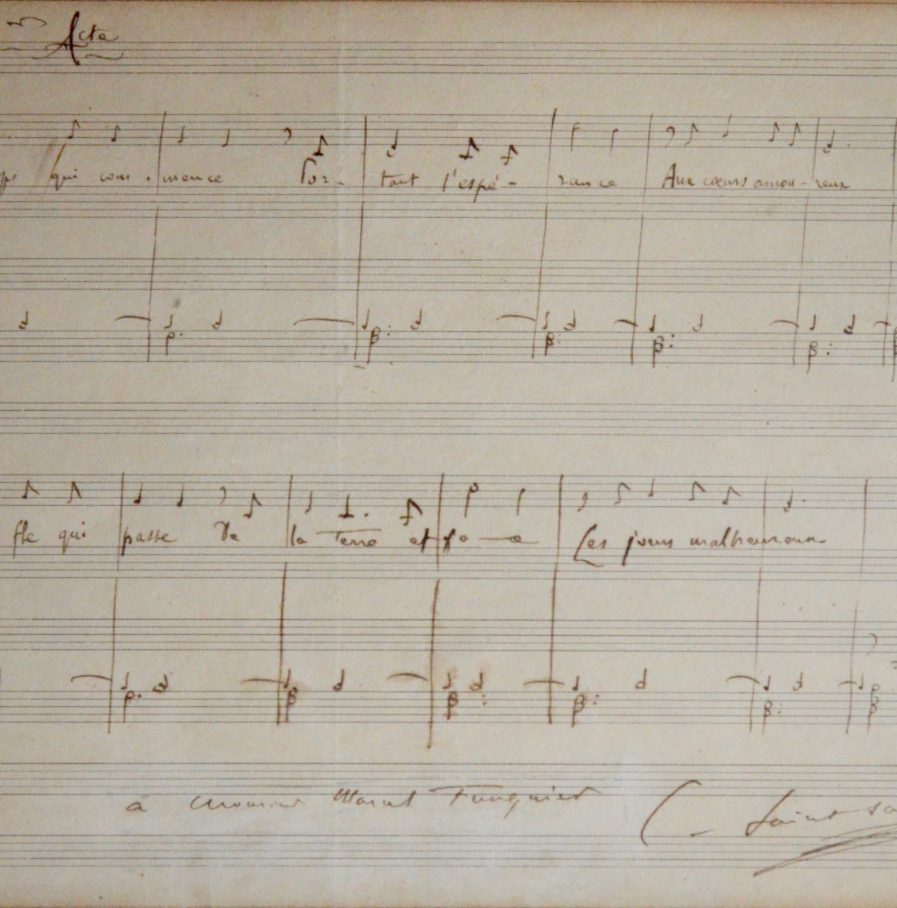 Acte
qui com - mence Por - tant l'espé - rance Aux cœurs amou - reux
fle qui passe De la Terre efface Les jours malheureux
à Monsieur Marcel Fouquier
C. Saint-Sa